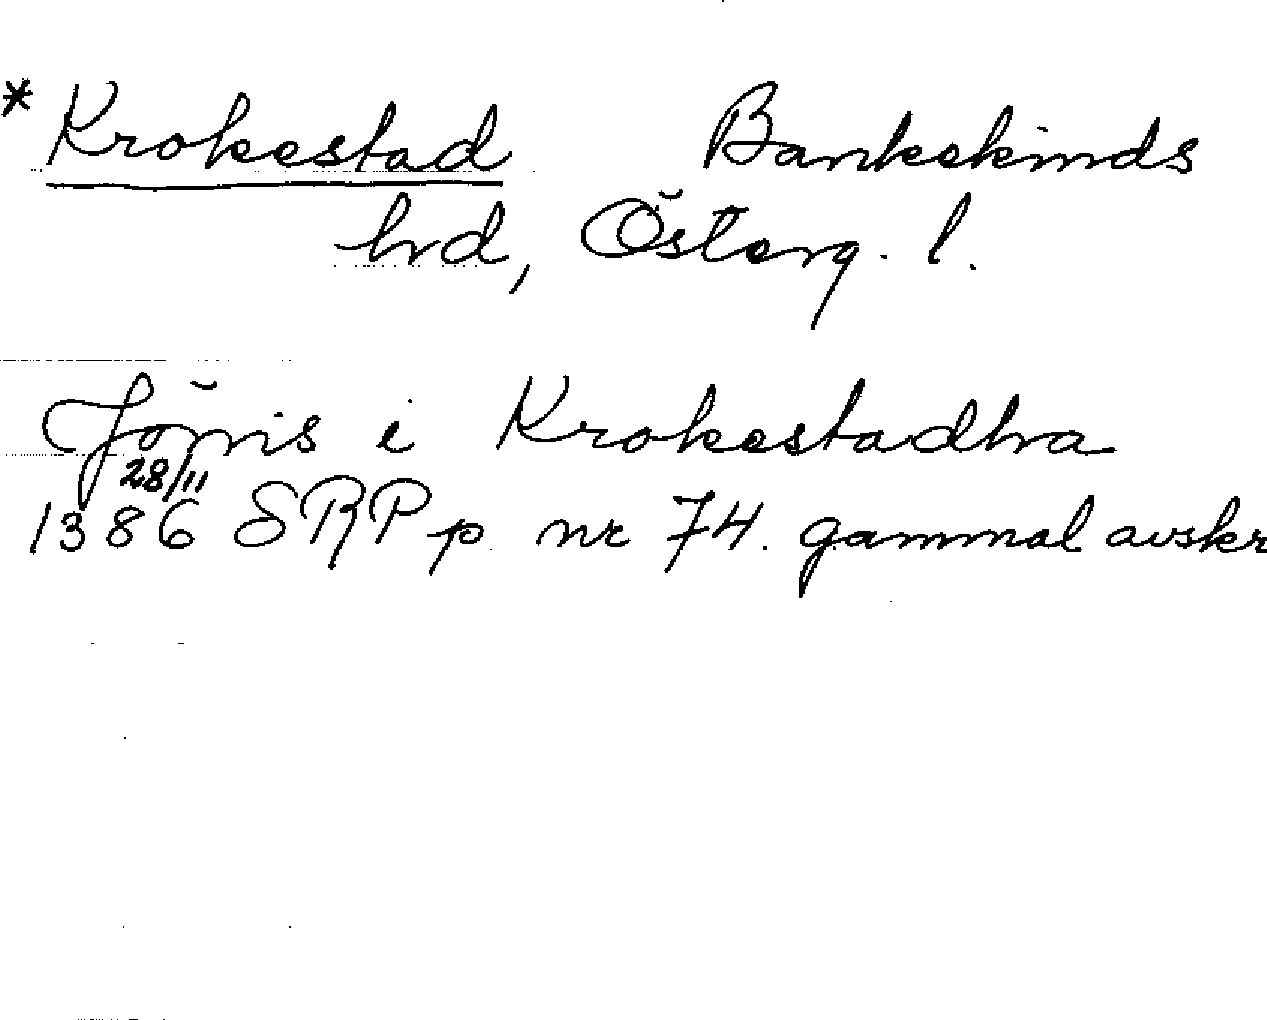 * Krokestad Bankekinds
hrd, Österg. l.
Jönis i Krokestadha
28/11
1386 SRP p nr 74. gammal avskr